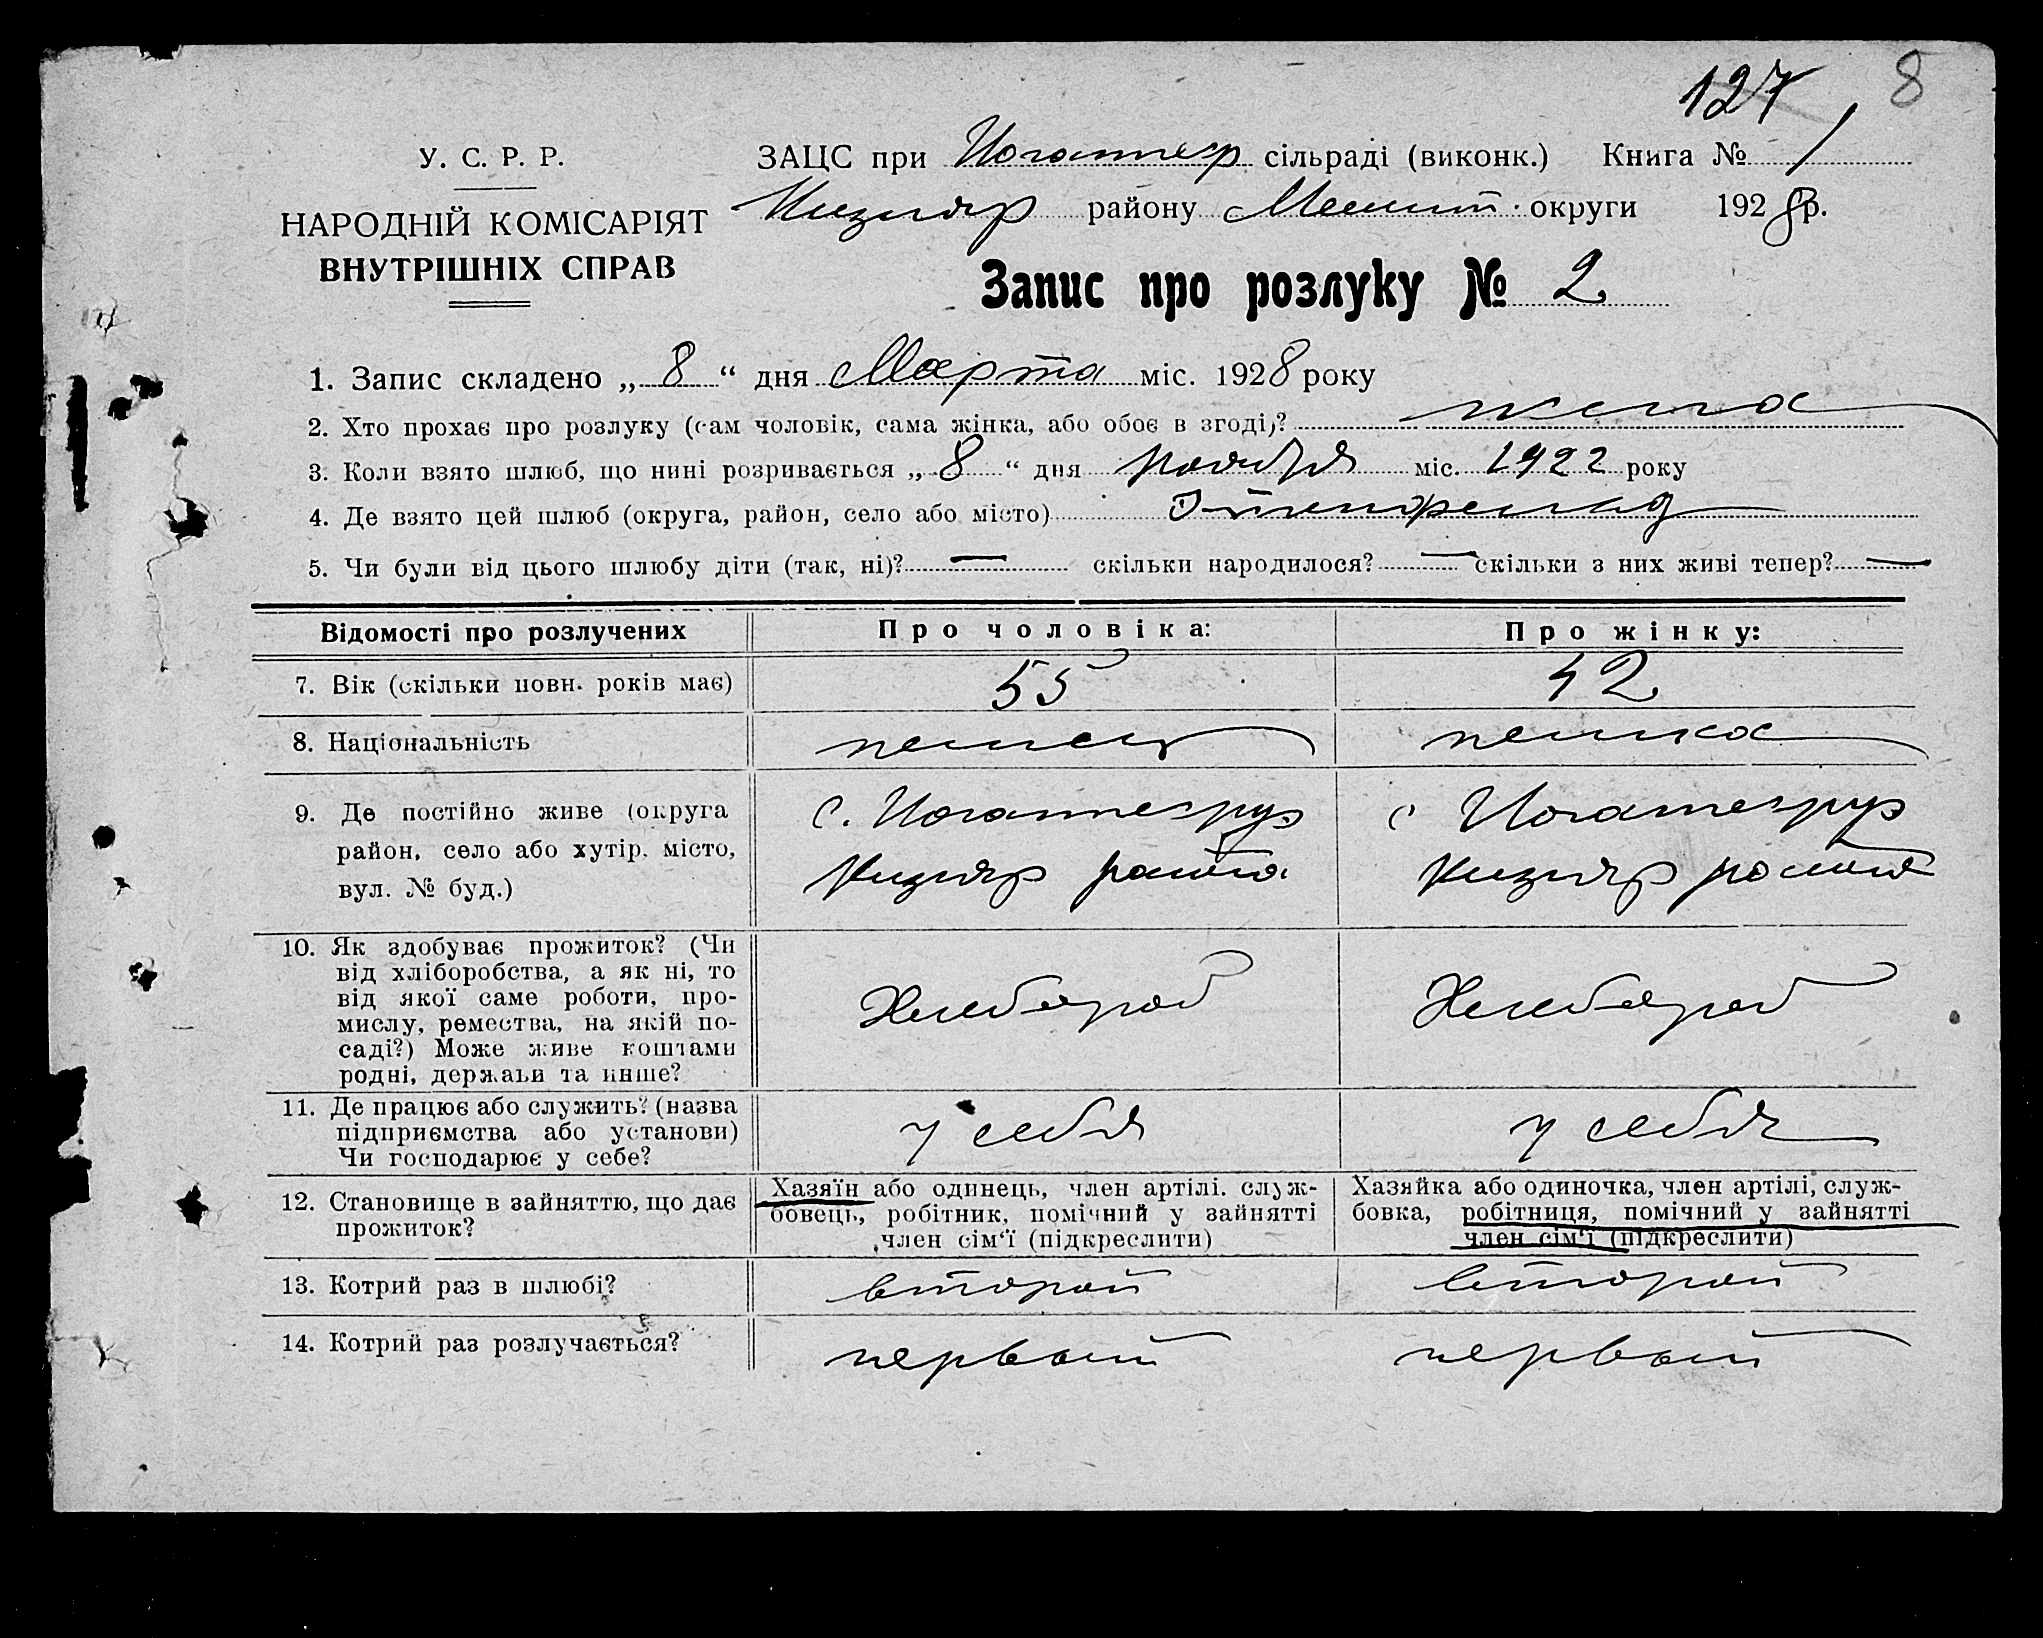 127 8
У. С. Р. Р.
НАРОДНІЙ КОМІСАРІЯТ
ВНУТРІШНІХ СПРАВ
ЗАЦС при сільраді (виконк.) Книга № 1
району Мелит. округи 1928 р.
Запис про розлуку № 2
1. Запис складено „ 8 “ дня Марта міс. 1928 року
2. Хто прохає про розлуку (сам чоловік, сама жінка, або обоє в згоді)? жена
3. Коли взято шлюб, що нині розривається „ 8 “ дня ноября міс. 1922 року
4. Де взято цей шлюб (округа, район, село або місто)
5. Чи були від цього шлюбу діти (так, ні)? — скільки народилося? — скільки з них живі тепер? —
Відомості про розлучених Про чоловіка: Про жінку:
7. Вік (скільки повн. років має) 55 42
8. Національність немец немка
9. Де постійно живе (округа
район, село або хутір, місто,
вул. № буд.)
с. Иогатесгру
района
с Иогатесгру
района
10. Як здобуває прожиток? (Чи
від хліборобства, а як ні, то
від якої саме роботи, про-
мислу, ремества, на якій по-
саді?) Може живе коштами
родні, держави та инше?
Хлебороб
Хлебороб
11. Де працює або служить? (назва
підприємства або установи)
Чи господарює у себе?
у себя
у себя
12. Становище в зайняттю, що дає
прожиток?
Хазяїн або одинець, член артілі, служ-
бовець, робітник, помічний у зайнятті
член сім'ї (підкреслити)
Хазяйка або одиночка, член артілі, служ-
бовка, робітниця, помічний у зайнятті
член сім'ї (підкреслити)
13. Котрий раз в шлюбі? второй второй
14. Котрий раз розлучається? первый первый